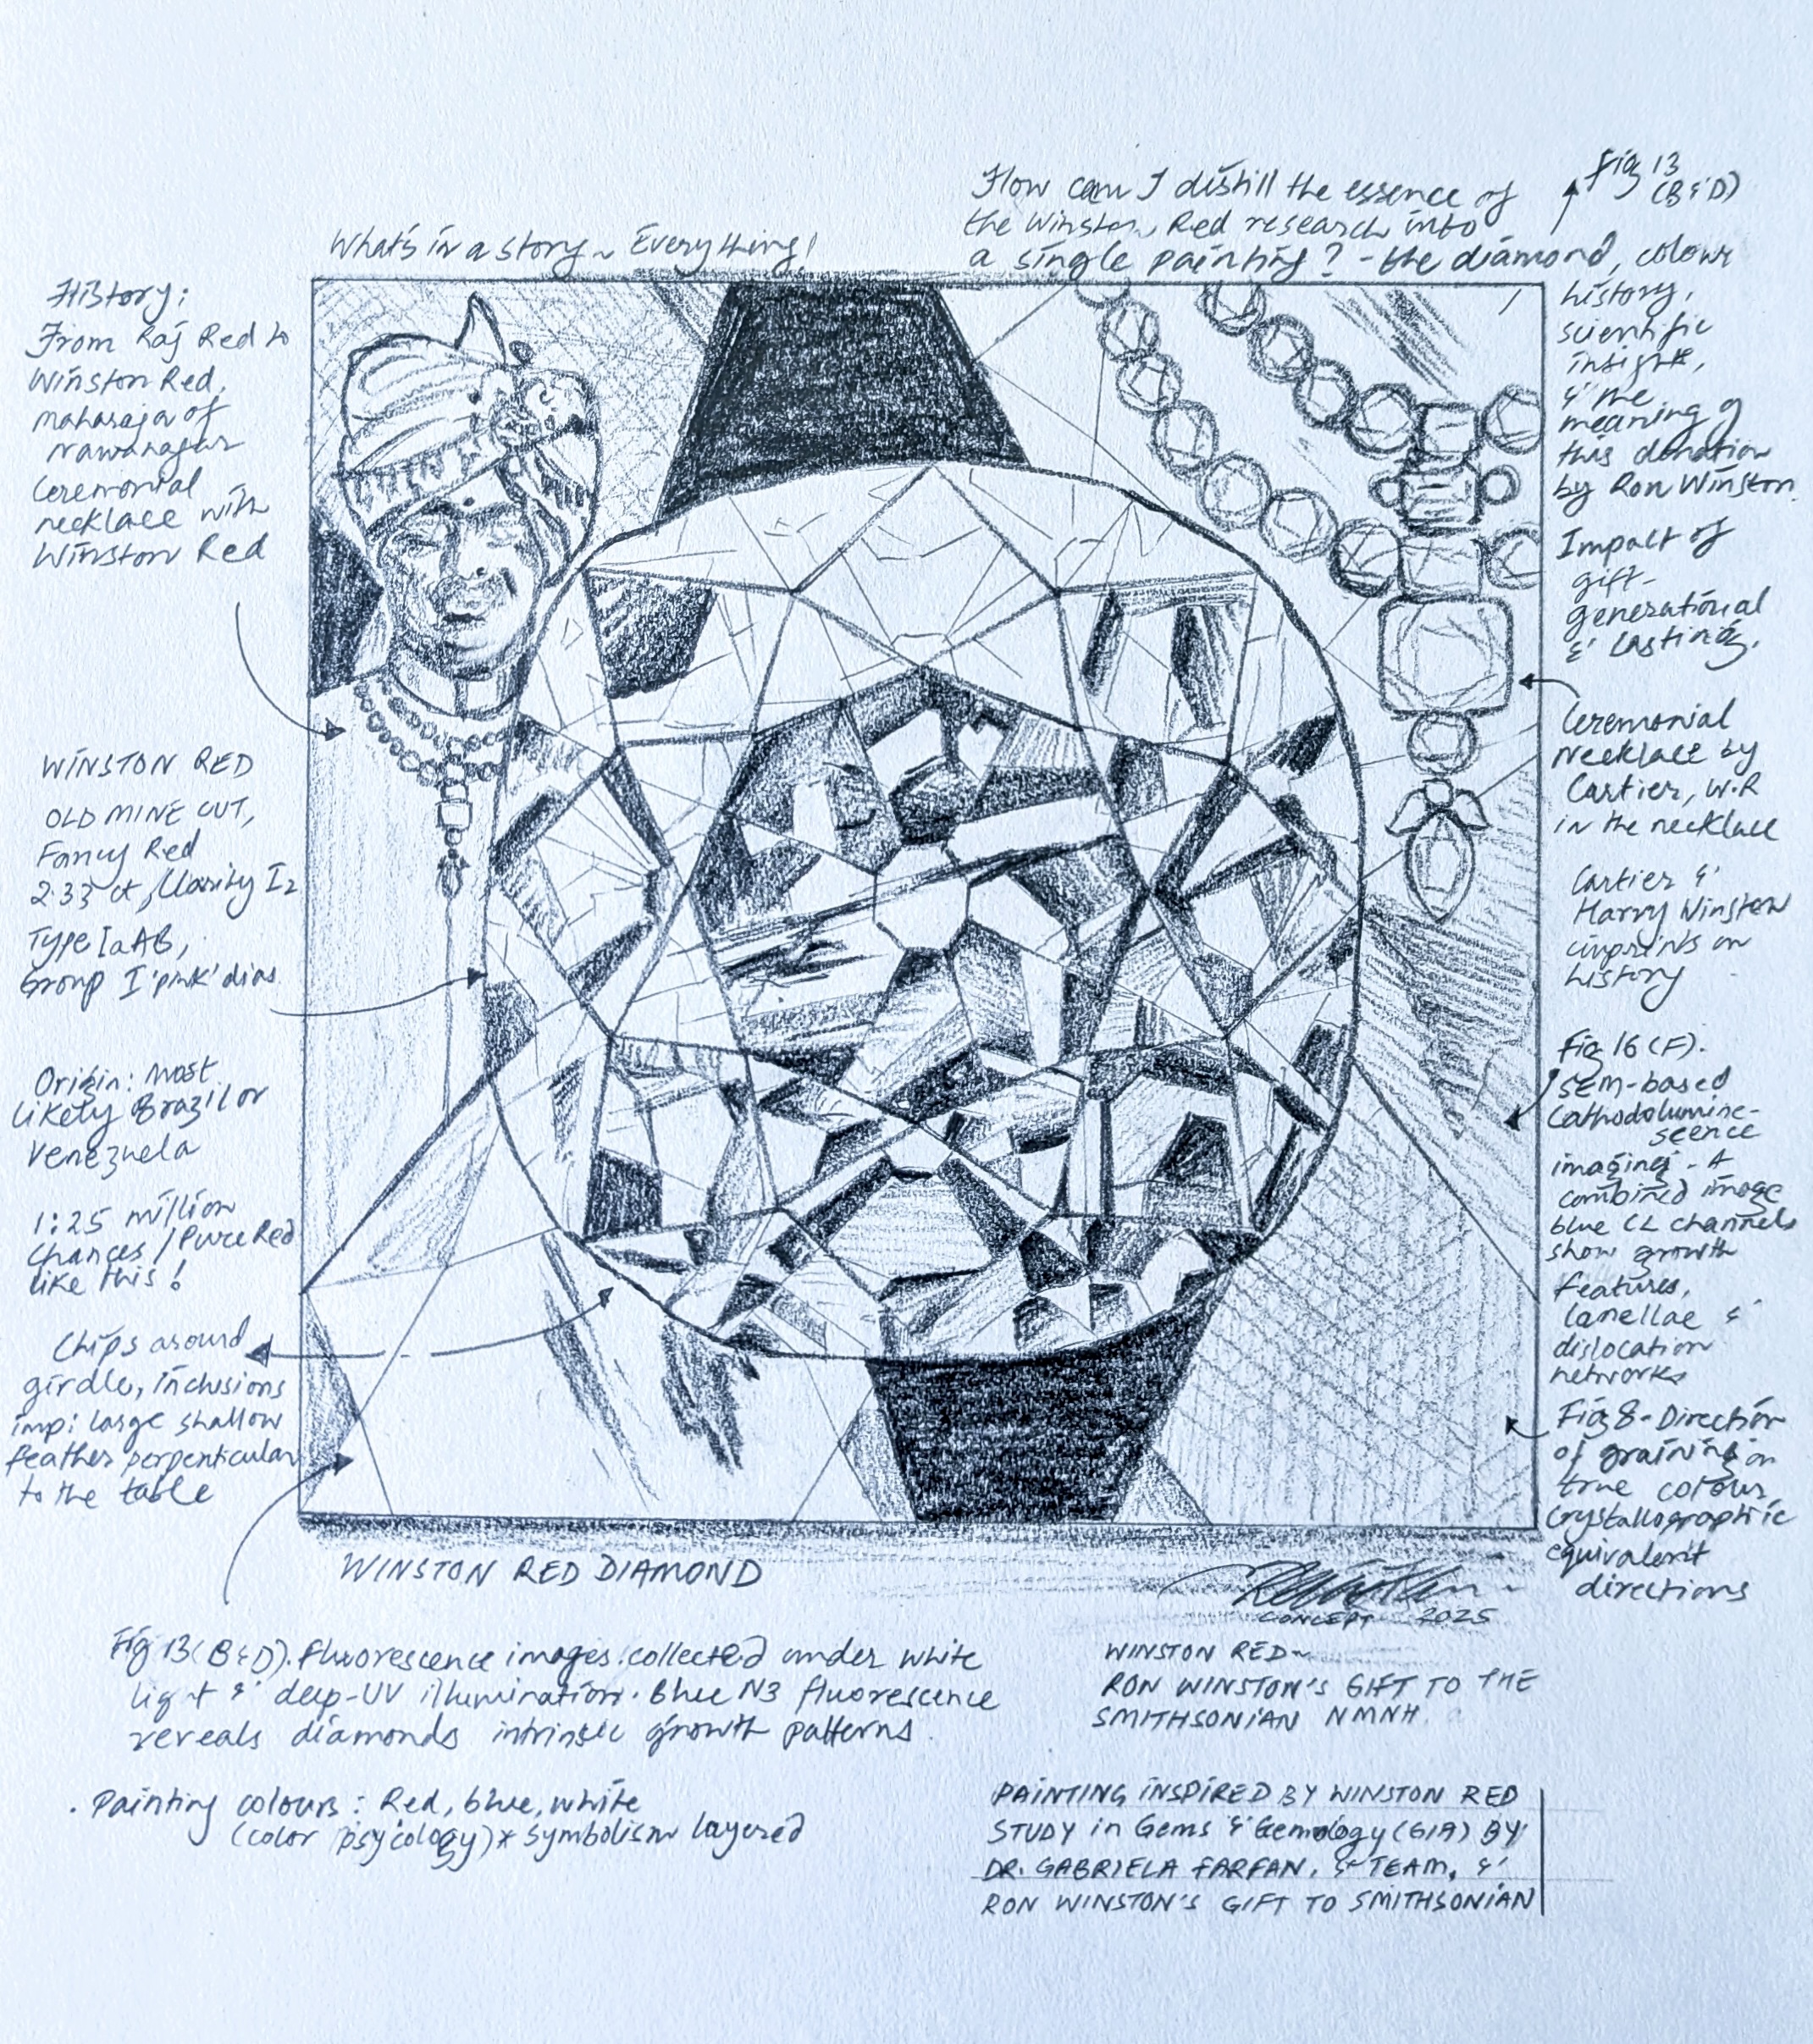 What's in a story ~ Everything!
How can I distill the essence of
the Winston Red research into
a single painting? - the diamond, colour
history,
scientific
insight,
& the
meaning of
this donation
by Ron Winston
Fig 13
(B & D)
History:
From Raj Red to
Winston Red,
maharaja of
Nawanagar
Ceremonial
necklace with
Winston Red
WINSTON RED
OLD MINE CUT,
Fancy Red
2.33 ct, Clarity I2
Type IaAB,
Group I 'pink' dias.
Origin: most
likely Brazil or
Venezuela
1:25 million
chances / Pure Red
like this!
Chips around
girdle, inclusions
imp: large shallow
feather perpenticular
to the table
Impact of
gift -
generational
& lasting.
Ceremonial
Necklace by
Cartier, W.R
in the necklace
Cartier &
Harry Winston
imprints on
history
Fig 16 (F).
SEM-based
Cathodolumine-
scence
imaging - A
combined image
blue CL channels
show growth
features,
lamellae &
dislocation
networks
Fig 8 - Direction
of graining on
true colour
crystallographic
equivalent
directions
WINSTON RED DIAMOND
CONCEPT 2025
Fig 13 (B & D). Fluorescence images collected under white
light & deep-UV illumination. Blue N3 fluorescence
reveals diamonds intrinsic growth patterns.
WINSTON RED ~
RON WINSTON'S GIFT TO THE
SMITHSONIAN NMNH.
. Painting colours: Red, blue, white
(color psycology) * symbolism layered
PAINTING INSPIRED BY WINSTON RED
STUDY in Gems & Gemology (GIA) BY
DR. GABRIELA FARFAN, & TEAM, &
RON WINSTON'S GIFT TO SMITHSONIAN